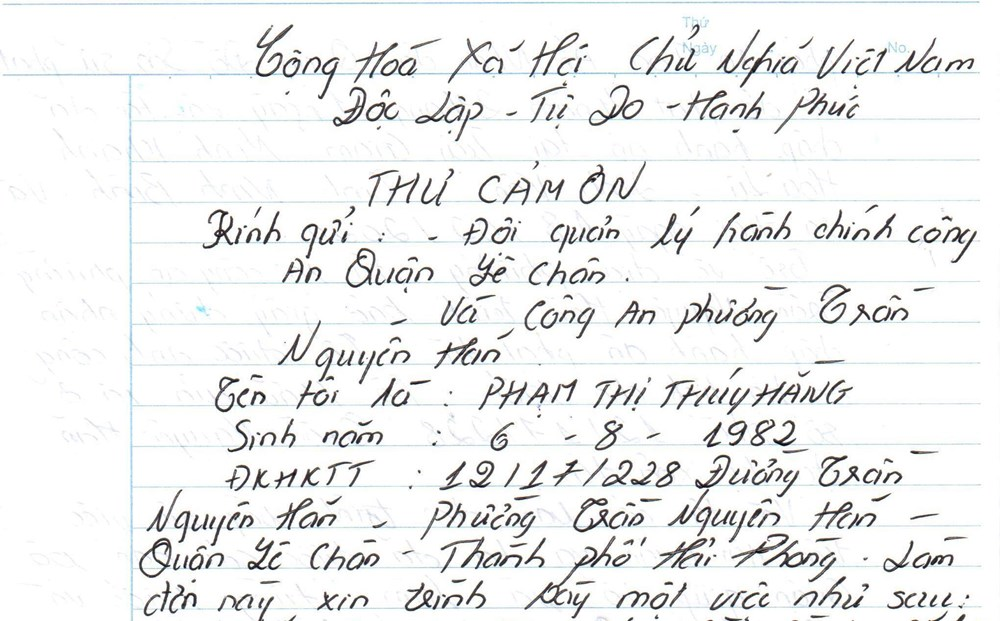 Thứ
Ngày
No.
Cộng Hoà Xã Hội Chủ Nghĩa Việt Nam
Độc Lập - Tự Do - Hạnh Phúc
THƯ CẢM ƠN
Kính gửi : - Đội quản lý hành chính công
An Quận Lê Chân.
Và Công An phường Trần
Nguyên Hãn
Tên tôi là : PHẠM THỊ THÚY HẰNG
Sinh năm : 6 - 8 - 1982
ĐKHKTT : 12/17/228 Đường Trần
Nguyên Hãn - Phường Trần Nguyên Hãn -
Quận Lê Chân - Thành phố Hải Phòng. Làm
đơn này xin trình bày một việc như sau: